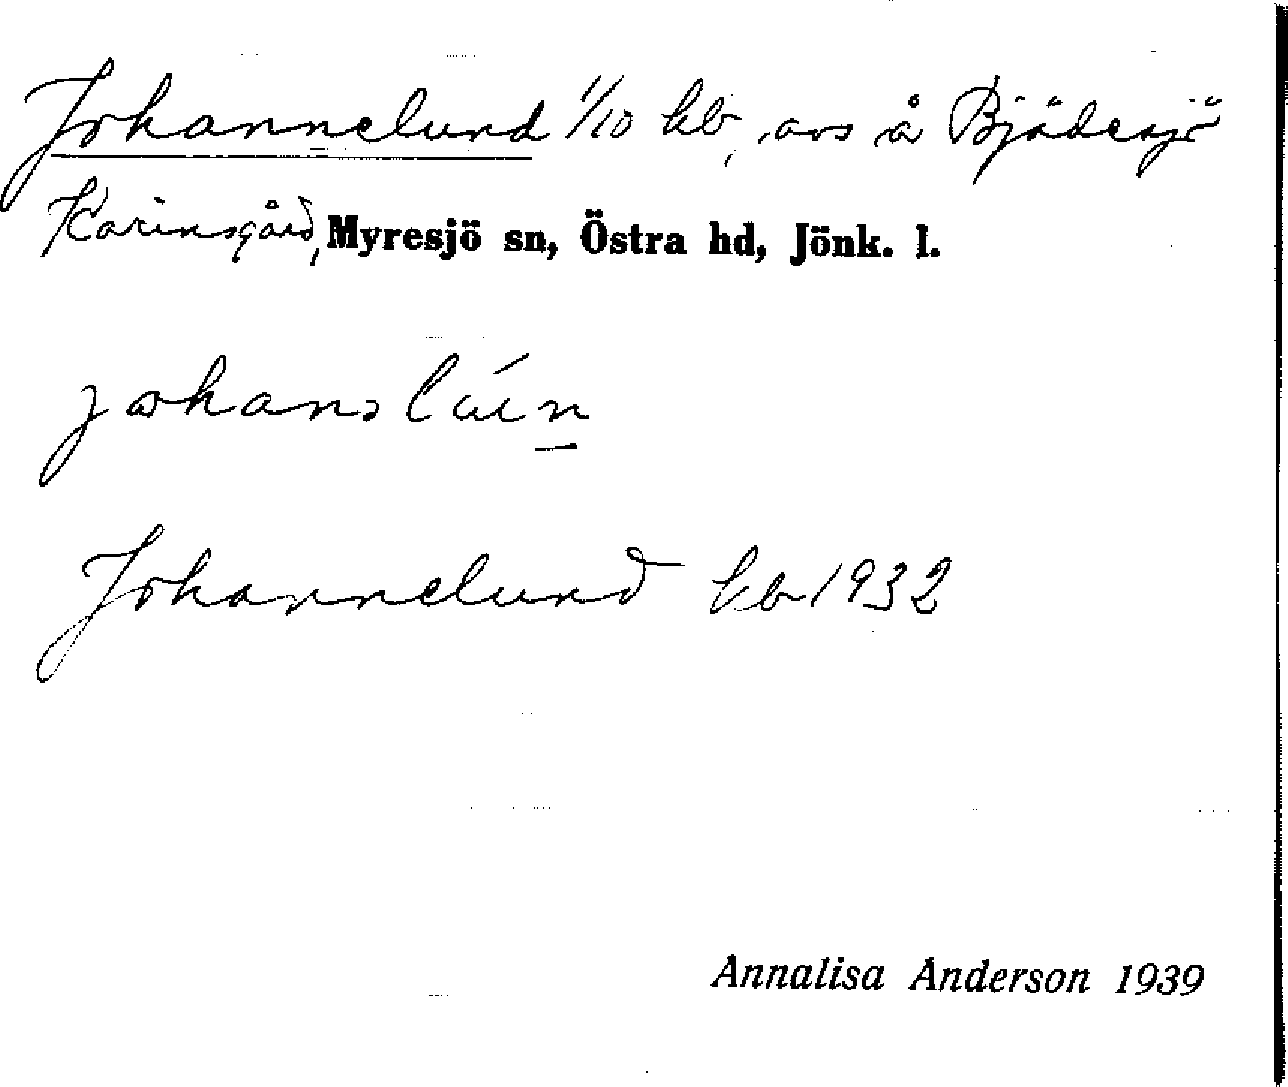 Johannelund 1/10 hb, avs å Bjädesjö
Karinsgård, Myresjö sn, Östra hd, Jönk. l.
Johannelund hb 1932
Annalisa Anderson 1939